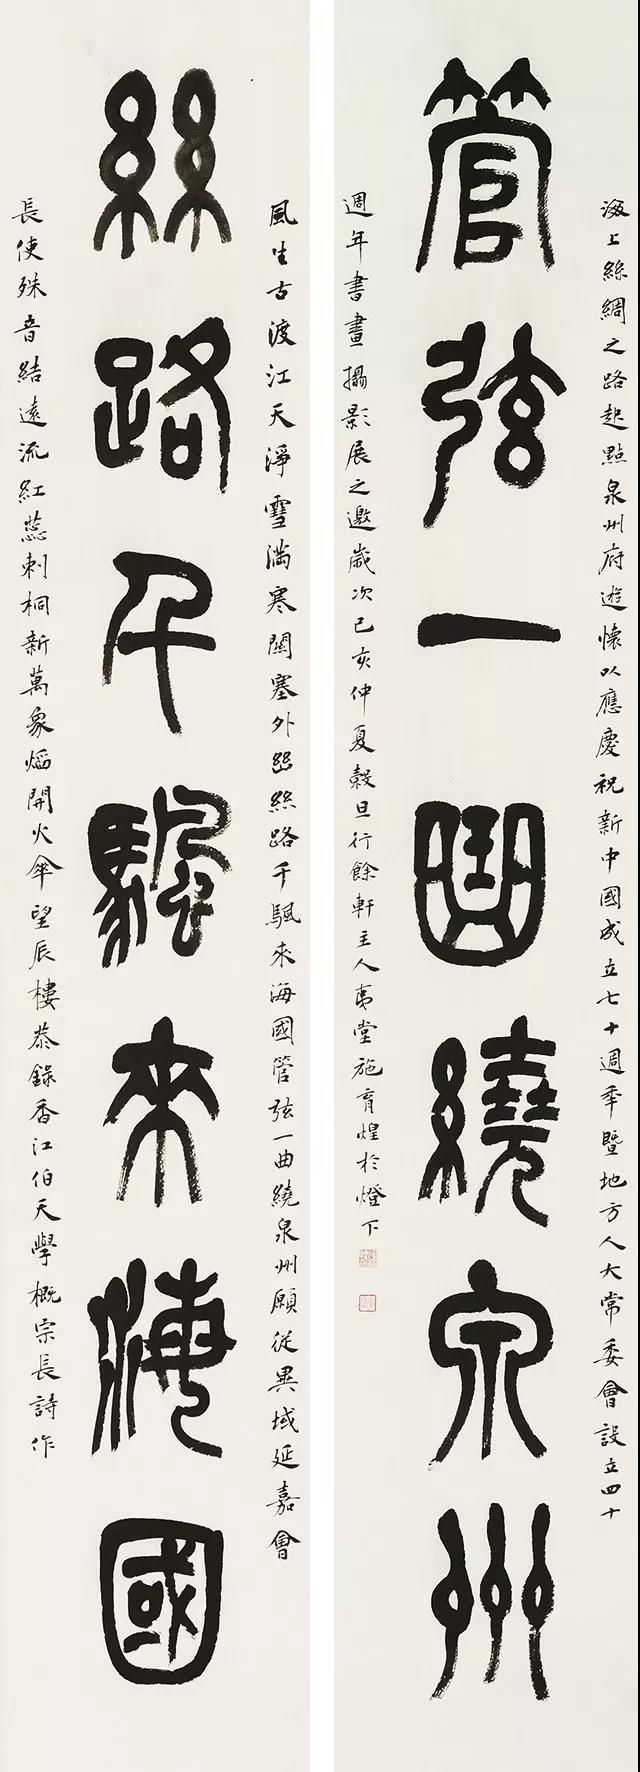 風生古渡江天淨雪滿寒關塞外幽絲路千颿來海國管弦一曲繞泉州願從異域延嘉會
絲路千颿來海國
長使殊音結遠流紅蕊刺桐新萬象焰開火傘望辰樓恭錄香江伯天學概宗長詩作
海上絲綢之路起點泉州府遊懷以應慶祝新中國成立七十週年暨地方人大常委會設立四十
管弦一曲繞泉州
週年書畫攝影展之邀歲次己亥仲夏穀旦行餘軒主人夷堂施育煌於燈下